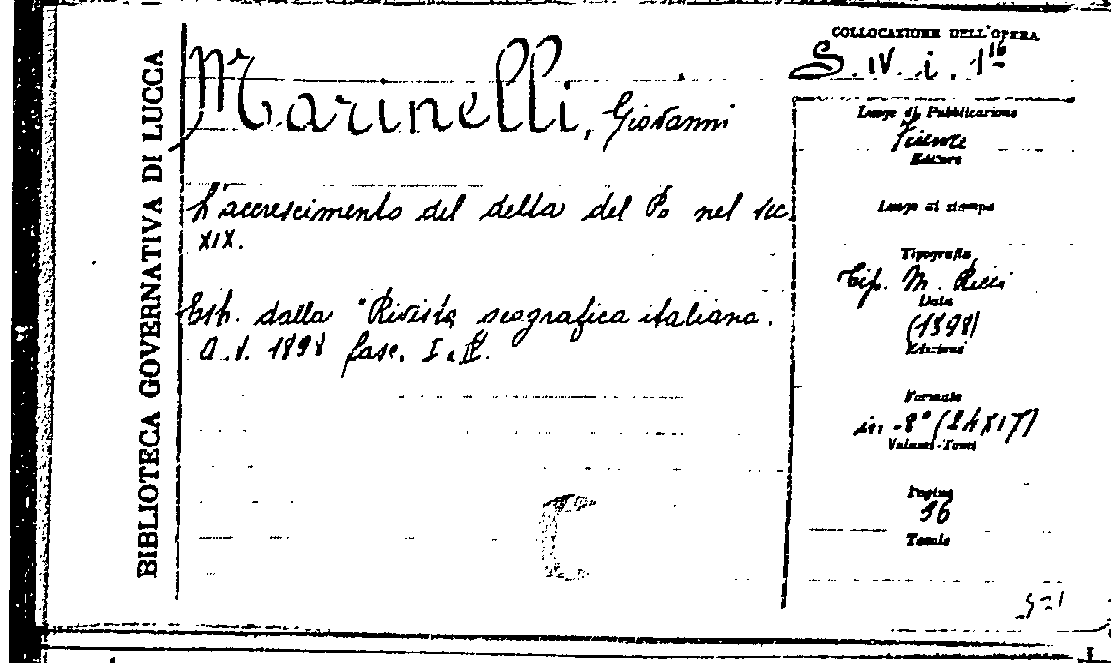 BIBLIOTECA GOVERNATIVA DI LUCCA
Marinelli, Giovanni
L'accrescimento del delta del Po nel sec.
XIX.
Estr. dalla "Rivista geografica italiana.
a. V. 1898 fasc. I e II.
C
COLLOCAZIONE DELL'OPERA
S. IV. i. 1
Luogo di Pubblicazione
Firenze
Editore
Luogo di stampa
Tipografia
Tip. M. Ricci
Data
(1898)
Edizioni
Formato
in -8° (24x17)
Volumi-Tomi
Pagine
36
Tavole